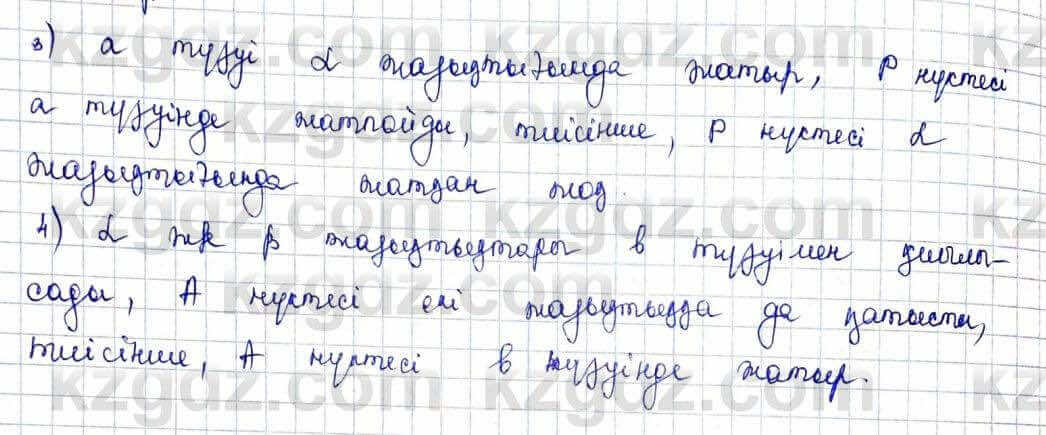 3) a түзуі α жазықтығында жатыр, P нүктесі
a түзуінде жатпайды, тиісінше, P нүктесі α
жазықтығында жатқан жоқ.
4) α жә β жазықтықтары в түзуімен қиылы-
сады, A нүктесі екі жазықтыққа да қатысты,
тиісінше, A нүктесі в түзуінде жатыр.